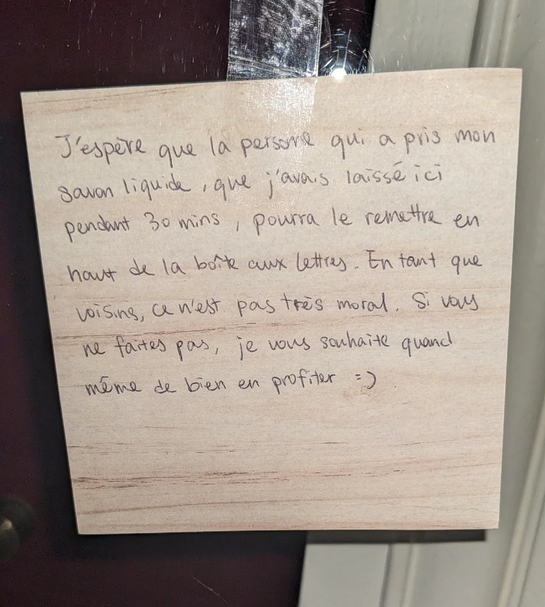 J'espère que la persone qui a pris mon
savon liquide, que j'avais laissé ici
pendant 30 mins, pourra le remettre en
haut de la boîte aux lettres. En tant que
voisins, ce n'est pas très moral. Si vous
ne faites pas, je vous souhaite quand
même de bien en profiter =)